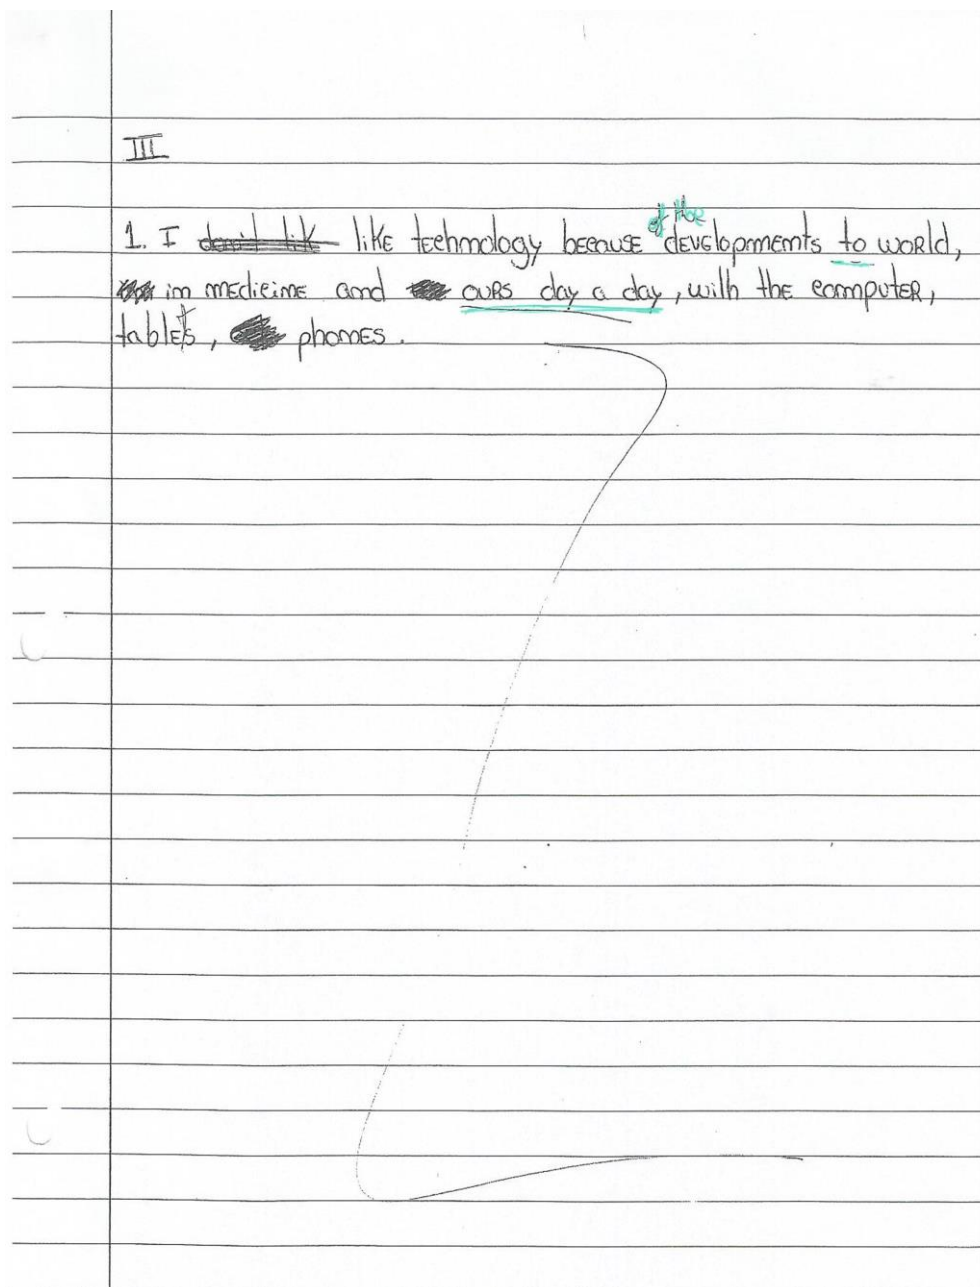 III
1. I don't lik like technology because of the developments to world,
in medicine and ours day a day, with the computer,
tablets, phones.